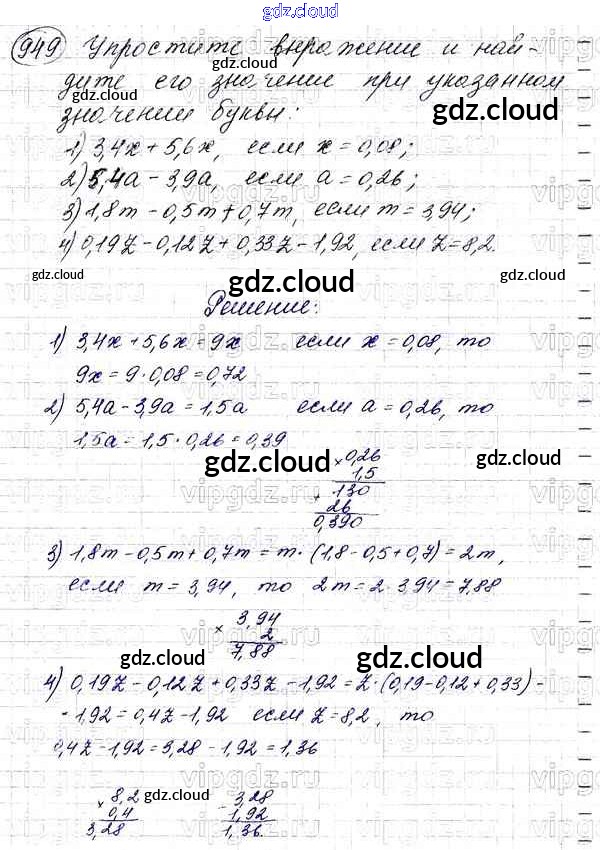 gdz.cloud
949 Упростите выражение и най-
дите его значение при указанном
значении буквы:
gdz.cloud gdz.cloud
1) 3,4x + 5,6x, если x = 0,08;
2) 5,4a - 3,9a, если a = 0,26;
3) 1,8m - 0,5m + 0,7m, если m = 3,94;
4) 0,19z - 0,12z + 0,33z - 1,92, если z = 8,2.
gdz.cloud gdz.cloud gdz.cloud
Решение:
1) 3,4x + 5,6x = 9x если x = 0,08, то
9x = 9 · 0,08 = 0,72
gdz.cloud
2) 5,4a - 3,9a = 1,5a если a = 0,26, то
1,5a = 1,5 · 0,26 = 0,39
gdz.cloud gdz.cloud
× 0,26
1,5
+ 130
26
0,390
3) 1,8m - 0,5m + 0,7m = m · (1,8 - 0,5 + 0,7) = 2m,
если m = 3,94, то 2m = 2 · 3,94 = 7,88
× 3,94
2
7,88
gdz.cloud gdz.cloud gdz.cloud
4) 0,19z - 0,12z + 0,33z - 1,92 = z · (0,19 - 0,12 + 0,33) -
- 1,92 = 0,4z - 1,92 если z = 8,2, то
0,4z - 1,92 = 3,28 - 1,92 = 1,36
× 8,2 gdz.cloud - 3,28
0,4 1,92
3,28 1,36.
gdz.cloud